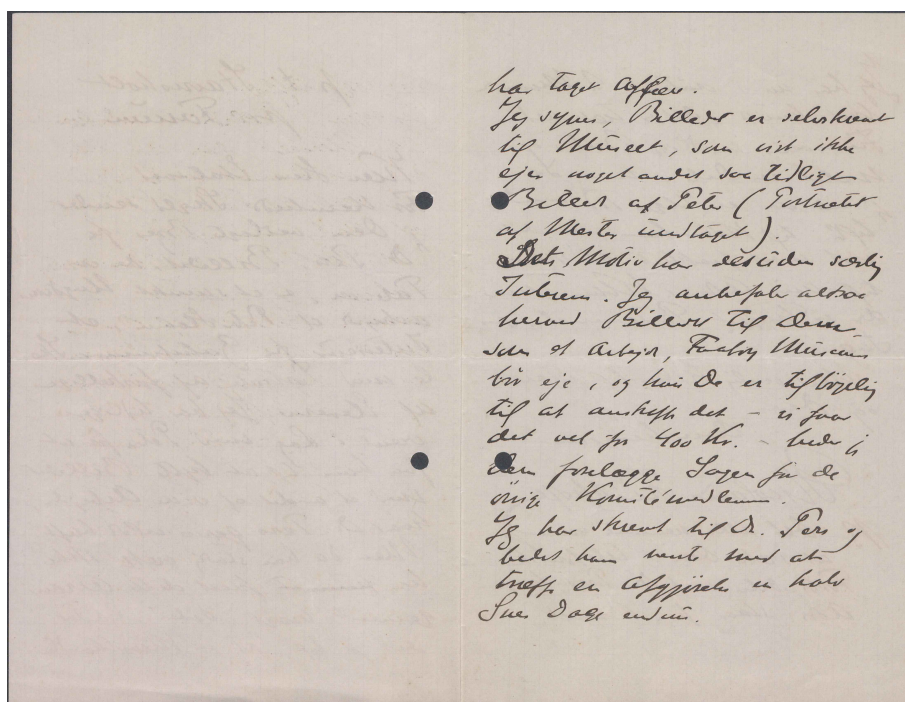 har taget Affære.
Jeg synes, Billedet er selvskrevet
til Museet, som vist ikke
ejer noget andet saa tidligt
Billede af Peter (Portrætet
af Mester undtaget).
Dets Motiv har desuden særlig
Interesse. Jeg anbefaler altsaa
herved Billedet til Dem
som et Arbejde, Faaborg Museum
bør eje, og hvis De er tilbøjelig
til at anskaffe det – vi faar
det vel for 400 Kr. – beder jeg
Dem forelægge Sagen for de
øvrige Komitémedlemmer.
Jeg har skrevet til Dr. Pers og
bedet ham vente med at
træffe en Afgjørelse en halv
Snes Dage endnu.